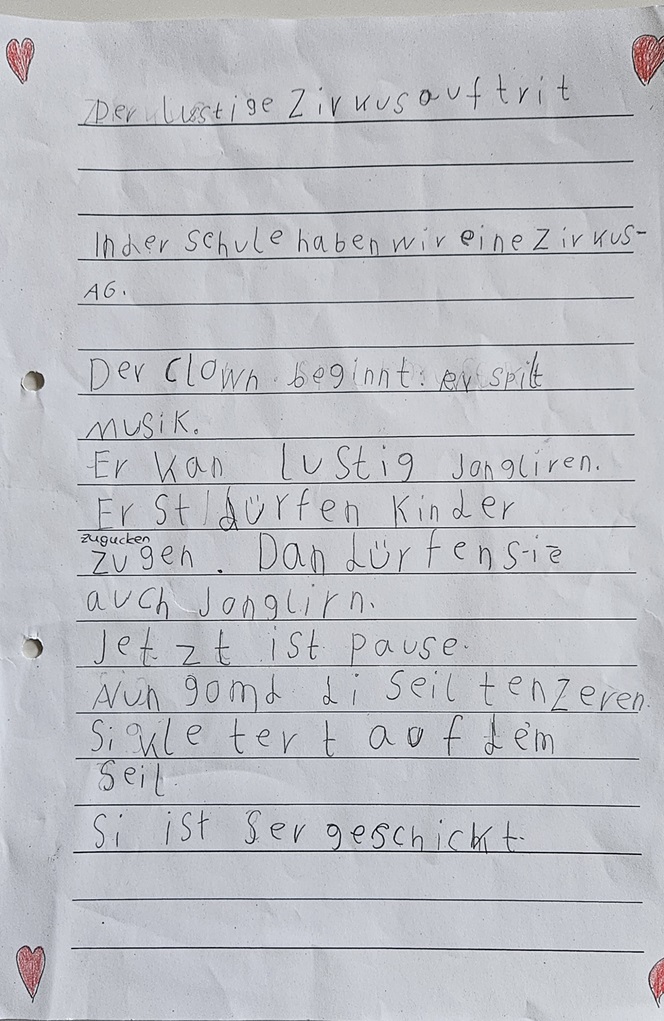 Der lustige Zirkusauftrit
In der Schule haben wir eine Zirkus-
AG.
Der Clown beginnt: er spilt
Musik.
Er kan lustig Jongliren.
Erst dürfen Kinder
zugucken
zugen. Dan dürfen sie
auch Jonglirn.
Jetzt ist Pause.
Nun gomd di Seil tenzeren.
Si kletert auf dem
Seil.
Si ist ser geschickt.